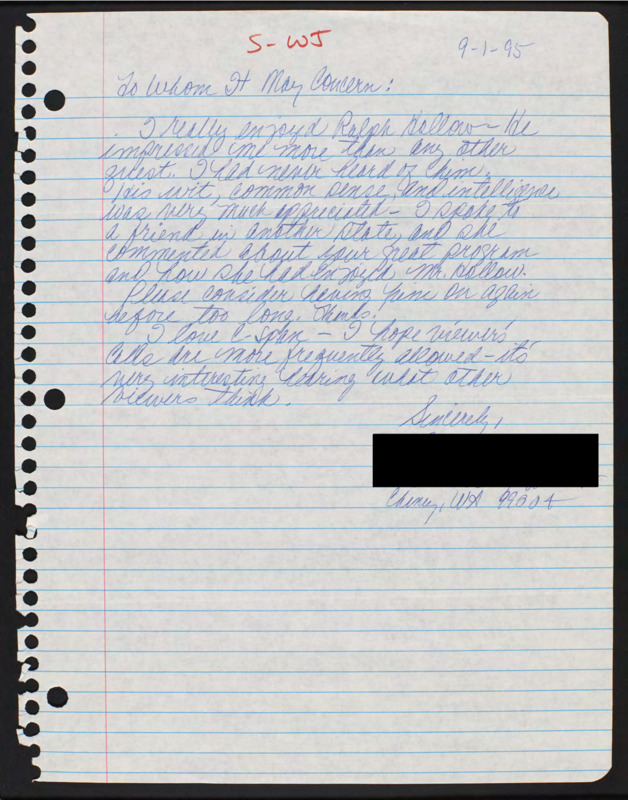 S-WJ
9-1-95
To Whom It May Concern:
I really enjoyd Ralph Hallow - He
impressed me more than any other
guest. I had never heard of him.
His wit, common sense, and intelligence
was very much appreciated - I spoke to
a friend in another state, and she
commented about your great program
and how she had enjoyd Mr. Hallow.
Please consider having him on again
before too long. Thanks.
I love C Span - I hope viewers'
calls are more frequently allowed - it's
very interesting hearing what other
viewers think.
Sincerely,
Cheney, WA 99004